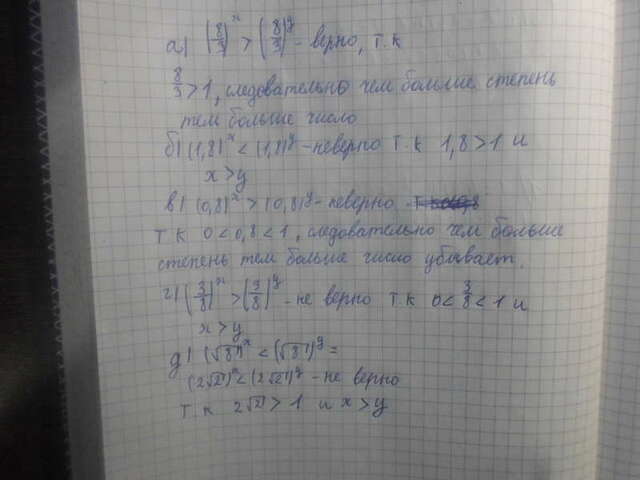 а) (8/3)^x > (8/3)^y - верно, т.к
8/3 > 1, следовательно чем больше степень
тем больше число
б) (1,8)^x < (1,8)^y - неверно т.к 1,8 > 1 и
x > y
в) (0,8)^x > (0,8)^y - неверно
т.к 0 < 0,8 < 1, следовательно чем больше
степень тем больше число убывает.
г) (3/8)^x > (3/8)^y - не верно т.к 0 < 3/8 < 1 и
x > y
д) (√8)^x < (√8)^y =
(2√2)^x < (2√2)^y - не верно
т.к 2√2 > 1 и x > y